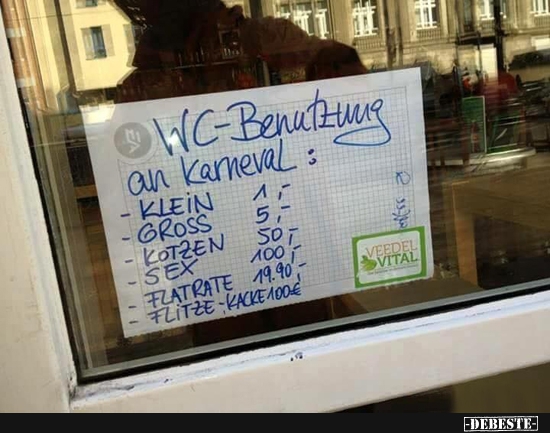 WC-Benutzung
an Karneval:
- KLEIN 1,-
- GROSS 5,-
- KOTZEN 50,-
- SEX 100,-
- FLATRATE 19.90,-
- FLITZE-KACKE 100€
VEEDEL
VITAL
-DEBESTE-